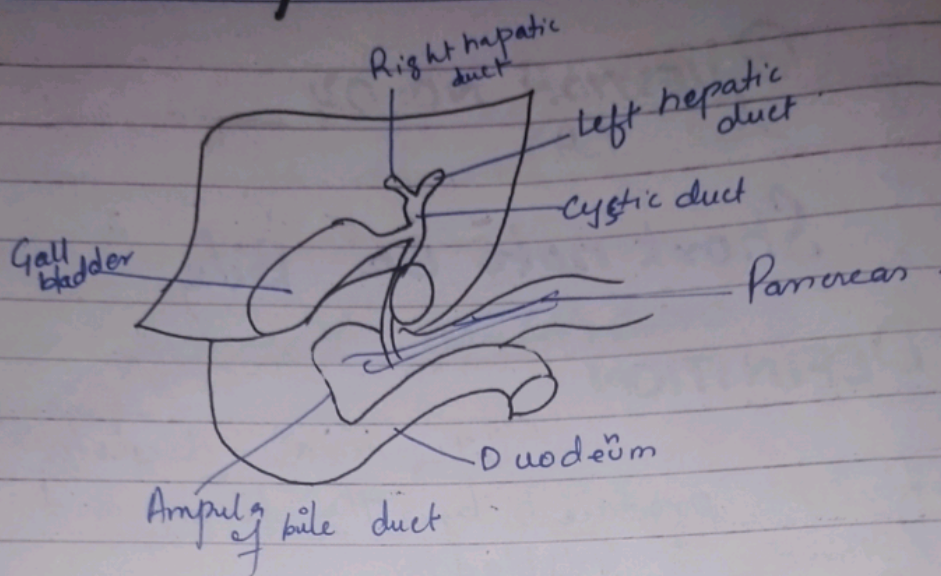 Right hapatic
duct
Left hepatic
duct
Cystic duct
Gall
bladder
Pancreas
Duodenum
Ampula
of bile duct